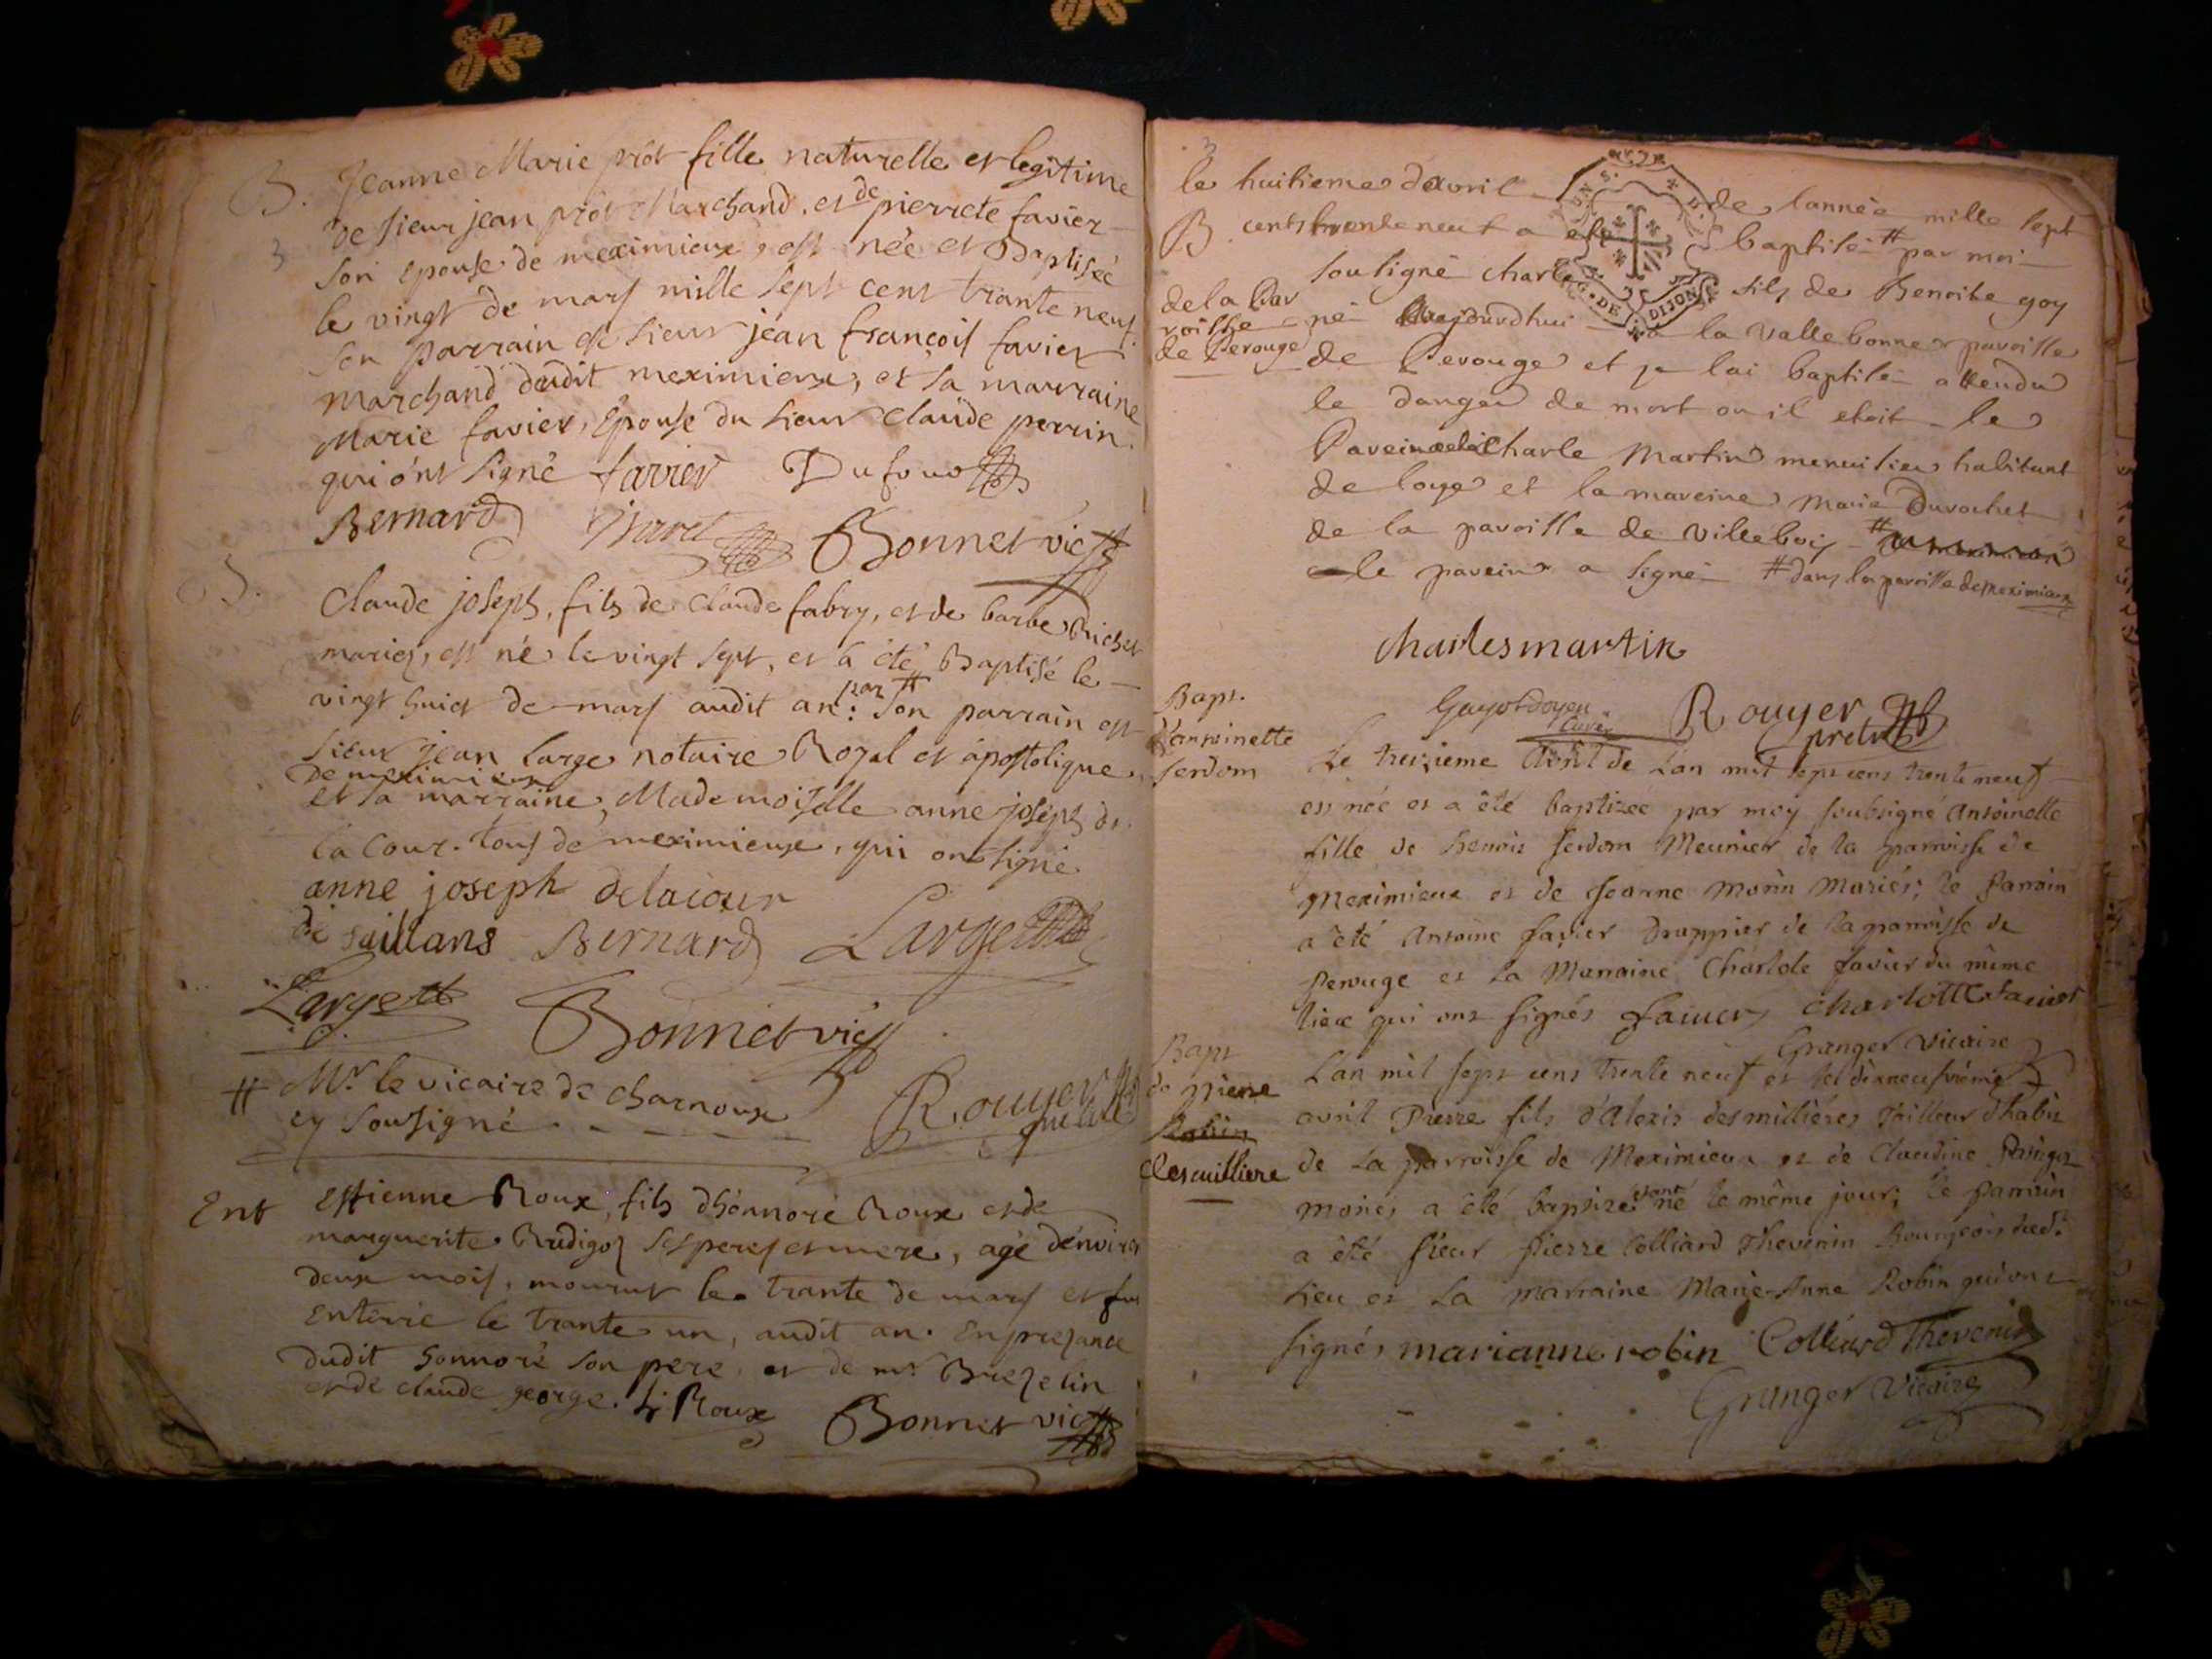 B. Jeanne Marie prôt fille naturelle et legitime
de sieur jean prôt Marchand, et de pierrete favier
3 son epouse de meximieux, est née et Baptisée
le vingt de mars mille sept cent trante neuf.
son parrain est sieur jean françois favier
marchand dudit meximieux, et sa marraine
Marie favier, Epouse du sieur claude perrin.
qui ont signé favrier Dufour
Bernard Bonnet vic
B.
Claude joseph, fils de claude fabry, et de barbe Richer
mariez, est né le vingt sept, et a été Baptisé le
vingt huict de mars audit an: par # son parrain est
sieur jean large notaire Royal et apostolique
de meximieux
et sa marraine, Mademoiselle anne joseph de
la Cour. tous de meximieux, qui ont signé
anne joseph delacour
de saillans Bernard Large
Large Bonnet vic
# Mr. le vicaire de charnoux
cy sousigné Rouyer
Ent Estienne Roux, fils d'hônnoré Roux et de
marguerite Rudigoz ses peres et mere, agé d'enviro
deux mois, mourut le trante de mars et fu
enterré le trante un, audit an. En prezance
dudit honnoré son pere, et de mr Brezelin
et de claude george. h. Roux Bonnet vic
3
le huitieme davril de lannée mille sept
B. cents trente neuf a eté baptisé # par moi
souligné charle fils de Benoite goy
de la Par
roisse né aujourdhui a la valle bonne paroisse
de Perouge de Perouge et je lai baptisé attendu
le danger de mort ou il etoit le
Parein a etté Charle Martin menuisier habitant
de loye et la mareine Marie Durochet
de la paroisse de villebois #
le parein a signé # dans la paroisse de meximieux
charles martin
Guyot doyen
Curé Rouyer
pretre
Bapt.
d'antoinette
serdom
Le treizieme Avril de Lan mil sept cens trente neuf
est née et a été baptizée par moy soubsigné Antoinette
fille de Benois serdom Meunier de la parroisse de
Meximieux et de Jeanne Morin Mariés; le Parrain
a été Antoine favier Drappier de la parroisse de
Perouge et la Marraine Charlote favier du même
lieux qui ont signés favier charlotte favier
Granger Vicaire
Bapt
de pierre
Robin
desmilliere
L'an mil sept cens trente neuf et le dixneufvième
avril Pierre fils d'Alexis desmillières Tailleur d'habit
de La parroisse de Meximieux et de Claudine
mariés a été baptizé etant né le même jour; le parrain
a été sieur Pierre Colliard Thevenin Bourgeois dud.
Lieu et La marraine Marie-Anne Robin qui ont
signés marianne robin Colliard Thevenin
Granger Vicaire